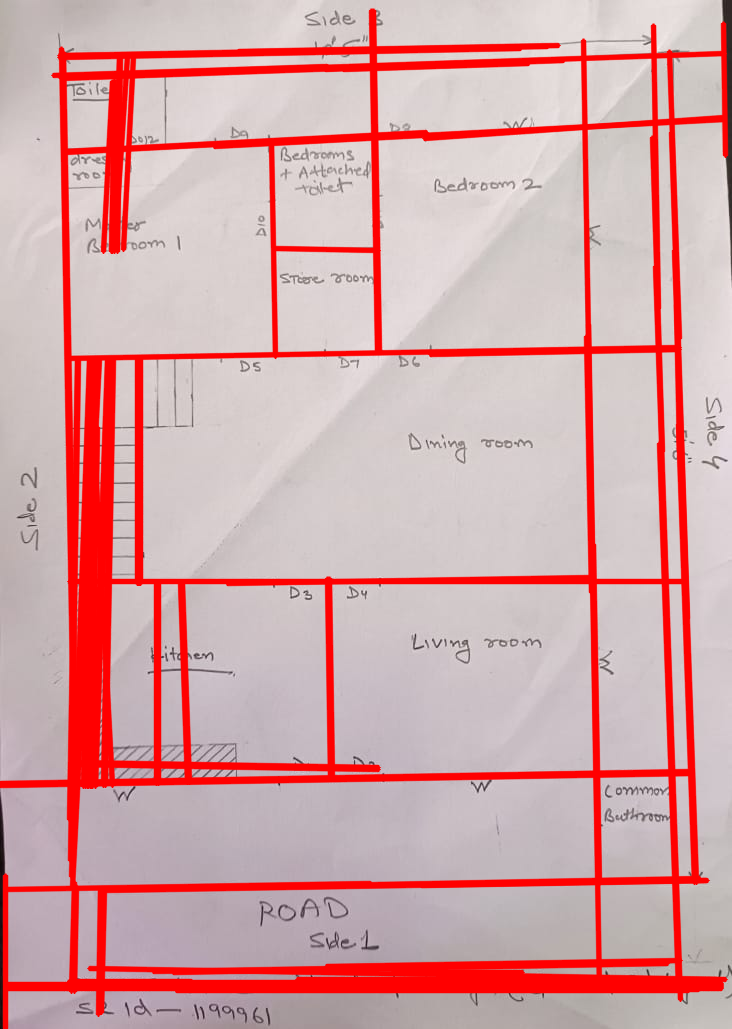 Side 3
Toile
D012
D9
D8
W
dres
room
Bedrooms
+ Attached
toilet
Bedroom 2
Bedroom 1
D10
W
Store room
D5
D7
D6
Dining room
Side 2
Side 4
D3
D4
Kitchen
Living room
W
W
W
Common
Bathroom
ROAD
Side 1
SR Id - 1199961